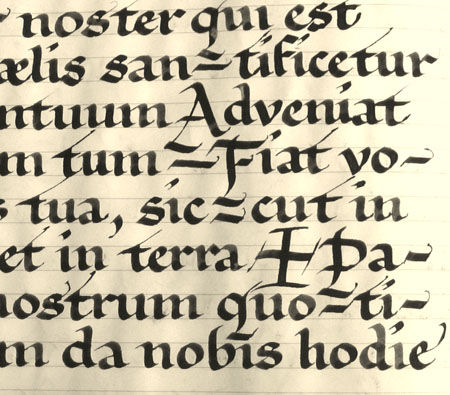 noster qui est
ælis san= tificetur
ntuum Adveniat
m tum = Fiat vo-
s tua, sic = cut in
et in terra + Pa-
nostrum quo = ti-
m da nobis hodie